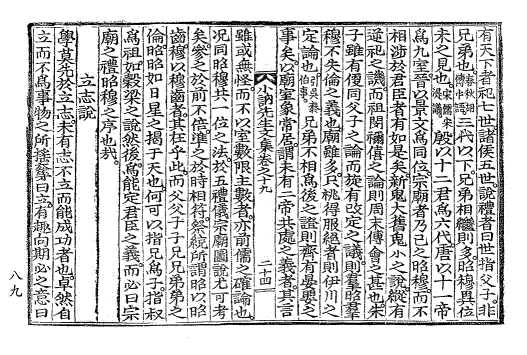 有天下者祀七世諸侯五世說禮者曰世指父子非
兄弟也春秋胡傳中語三代以下兄弟相繼則多昭穆異位
未之見也殷以十二君爲六代唐以十一帝
爲九室晉以景文爲同位宗廟者乃己之昭穆而不
相涉於君臣者有如是矣新鬼大舊鬼小之說縱有
逆祀之譏而祖閔禰僖之論則周末傅會之甚也朱
子雖有同父子之論而旋有改定之議則羣昭羣
穆不失倫之義也廟雖多只祧得服緦者則伊川之
定論也引吳泰伯事兄弟不相爲後之證則齊有晏嬰之
事矣以廟室象常居謂未有一帝共處之義者其言
小訥先生文集卷之十九 二十四
雖或無怪而不以室數限主數者亦前儒之確論也
況同昭穆共一位之法於五禮儀宗廟圖說尤可考
矣參之於前不倍準之於時相符祭統所謂昭以昭
齒穆以穆齒者其在乎此而父父子子兄兄弟弟之
倫昭昭如日星之揭于天也何可以指兄爲子指叔
爲祖如穀梁之說然後爲能定君臣之義而必曰宗
廟之禮昭穆之序也哉
立志說
學莫先於立志未有志不立而能成功者也卓然自
立而不爲事物之所搖奪曰立有趣向期必之意曰
八九